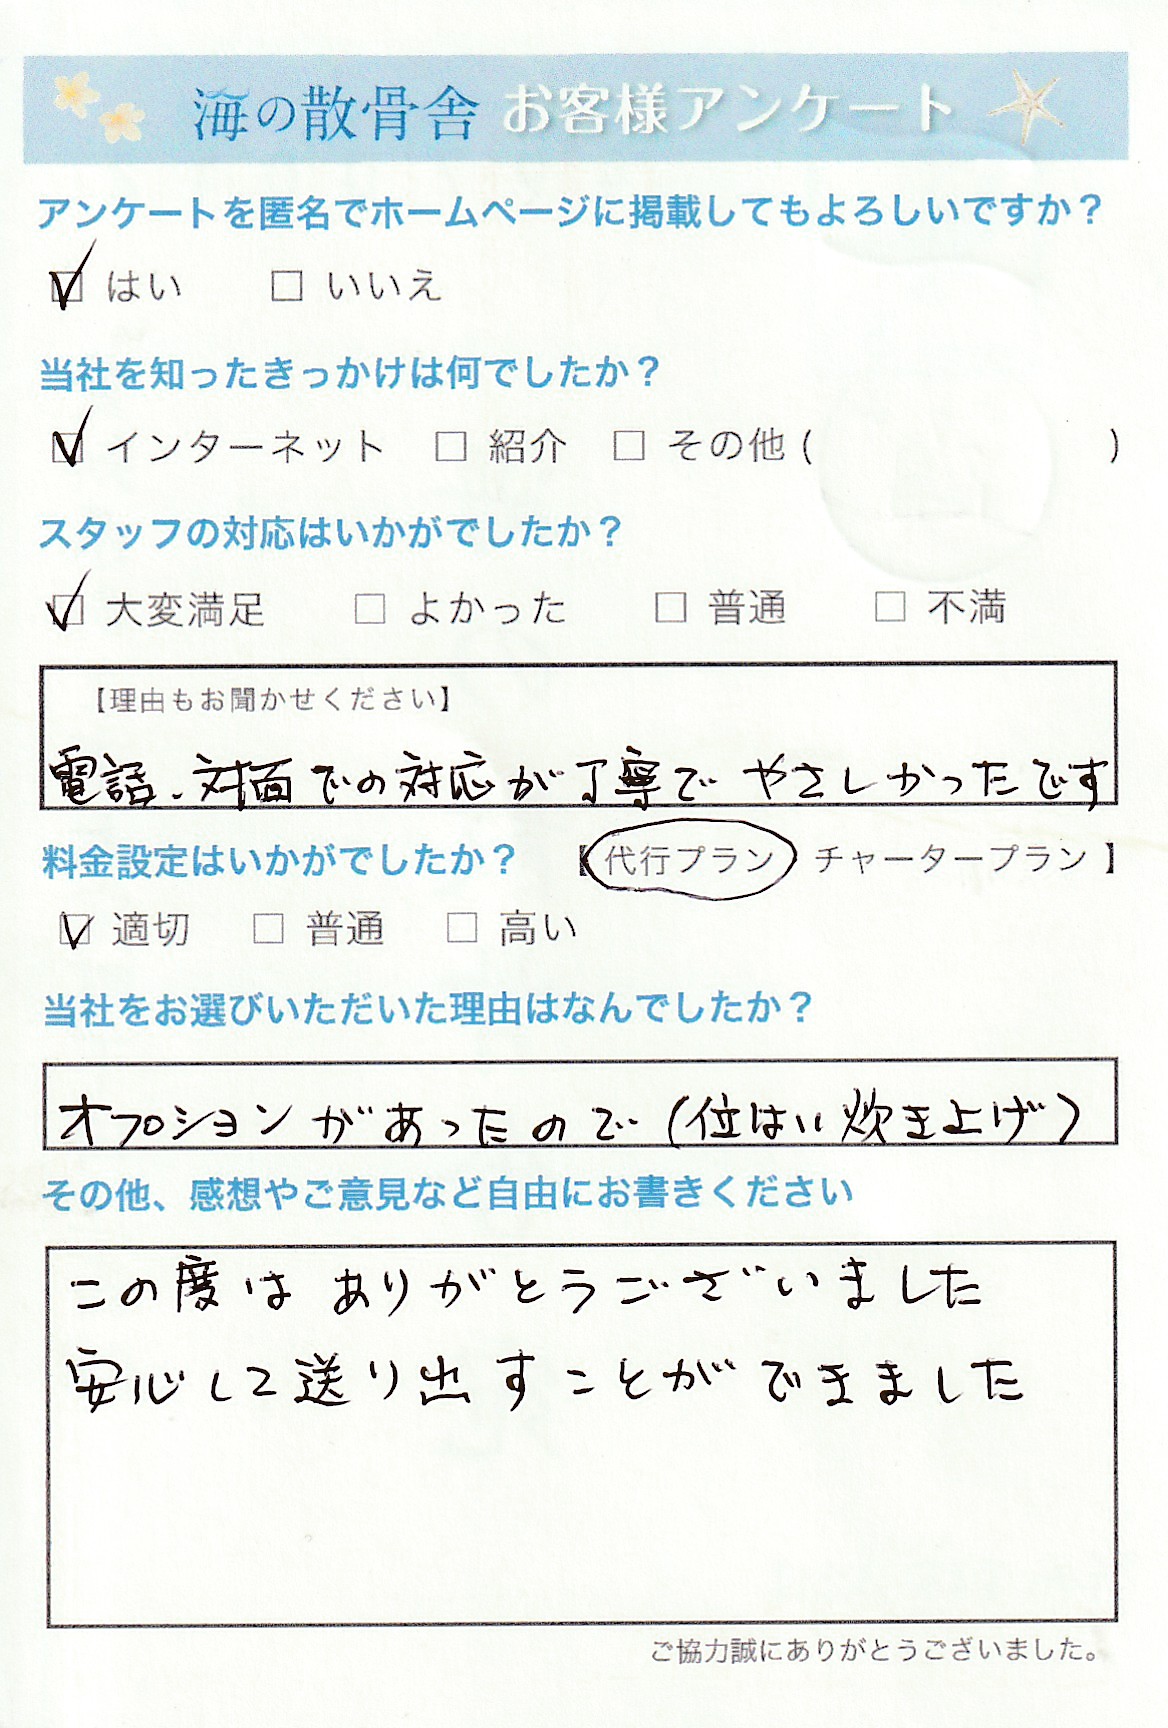 海の散骨舎 お客様アンケート
アンケートを匿名でホームページに掲載してもよろしいですか？
☑ はい □ いいえ
当社を知ったきっかけは何でしたか？
☑ インターネット □ 紹介 □ その他 ( )
スタッフの対応はいかがでしたか？
☑ 大変満足 □ よかった □ 普通 □ 不満
【理由もお聞かせください】
電話、対面での対応が丁寧で やさしかったです
料金設定はいかがでしたか？ 【代行プラン チャータープラン 】
☑ 適切 □ 普通 □ 高い
当社をお選びいただいた理由はなんでしたか？
オプションがあったので (位はい炊き上げ)
その他、感想やご意見など自由にお書きください
この度は ありがとうございました
安心して送り出すことができました
ご協力誠にありがとうございました。